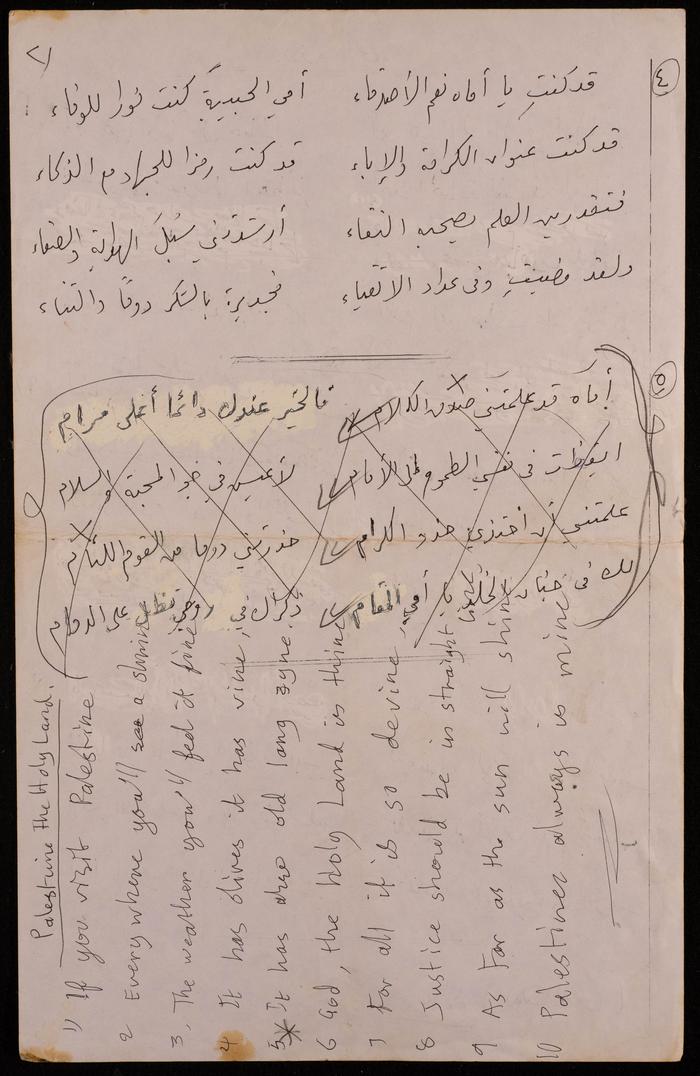 ٢/
٤
قد كنتِ يا أماه نعم الأصدقاء أمي الحبيبة كنت نورا للوفاء
قد كنت عنوان الكرامة والإباء قد كنت رمزا للجهاد مع الذكاء
فتقدرين العلم يصحبه النقاء أرشدتني سبل الهداية والصفاء
ولقد مضيتِ وفي عداد الاتقياء فجديرة بالشكر دوما والثناء
٥
أماه قد علمتني صدق الكلام فالخير عندك دائما أغلى مرام
ايقظت في نفسي الطموح إلى الأمام لأعيش في جو المحبة والسلام
علمتني أن احتذي حذو الكرام حذرتني دوما من القوم اللئام
لك في جنان الخلد يا أمي المقام ذكراك في روحي تظل على الدوام
Palestine the Holy Land.
1) If you visit Palestine
2 Everywhere you'll see a shining
3, The weather you'll feel it fine
4 It has olives it has vine,
5 It has also old lang zyne.
6 God, the Holy Land is thine
7 For all it is so devine,
8 Justice should be in straight line
9 As far as the sun will shine
10 Palestine always is mine